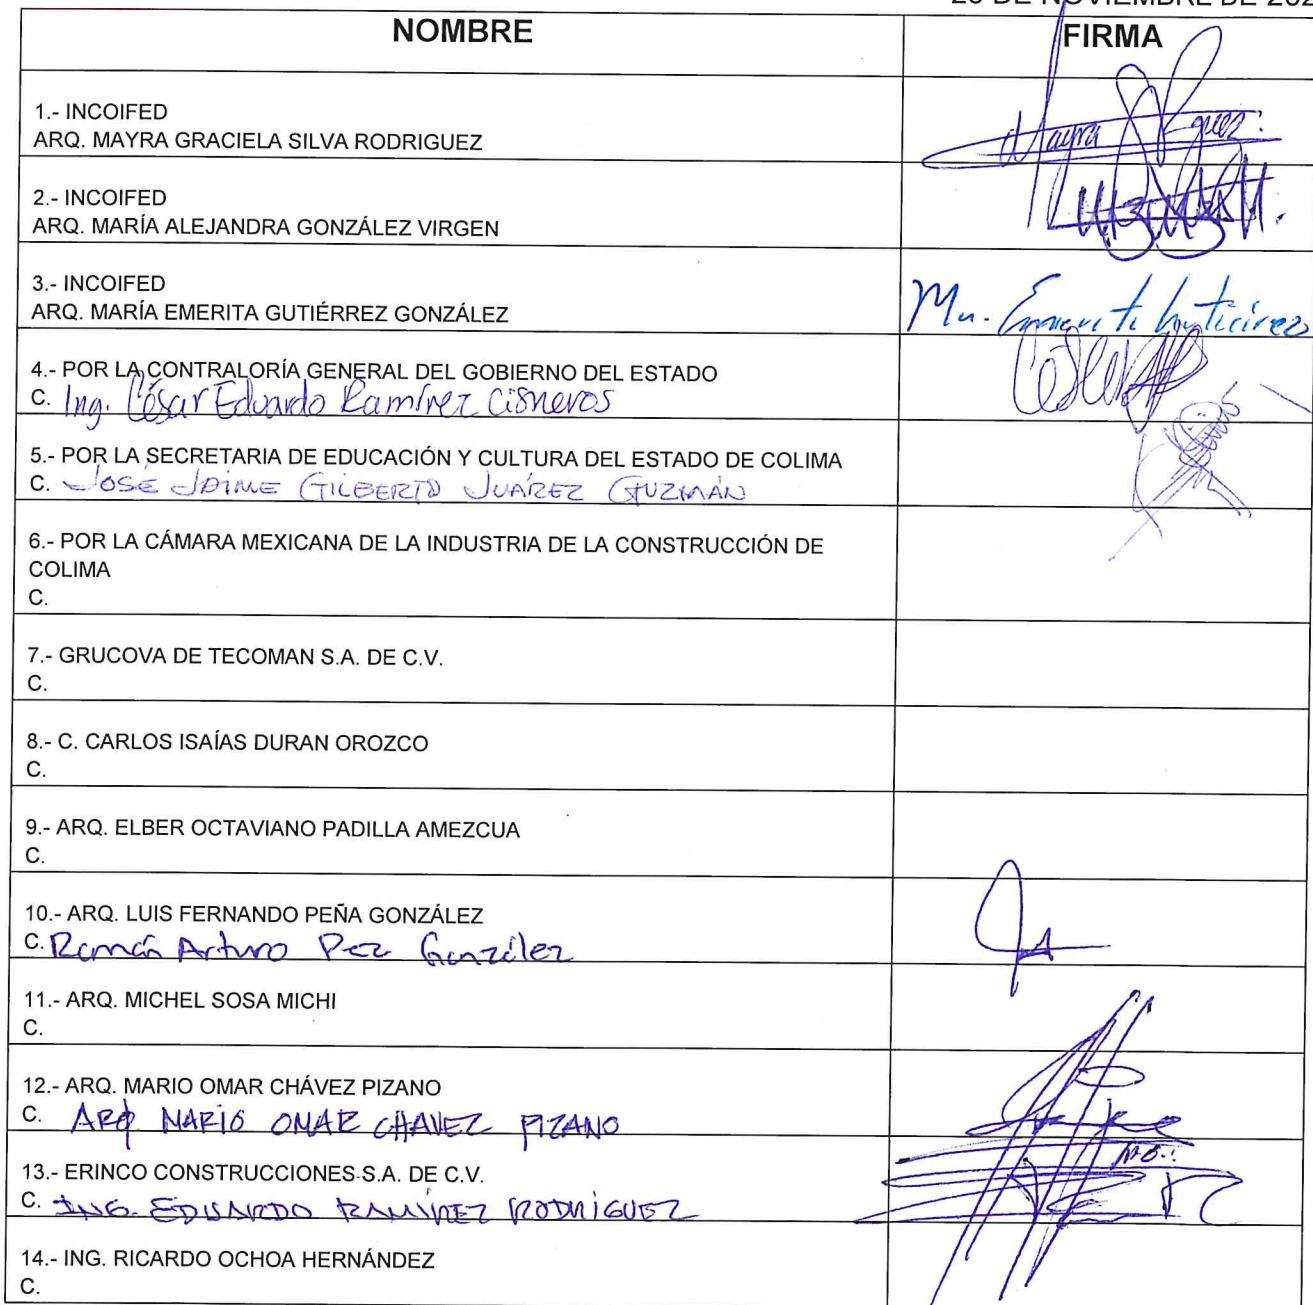 DE NOVIEMBRE DE 202
NOMBRE FIRMA
1.- INCOIFED
ARQ. MAYRA GRACIELA SILVA RODRIGUEZ
Mayra
2.- INCOIFED
ARQ. MARÍA ALEJANDRA GONZÁLEZ VIRGEN
3.- INCOIFED
ARQ. MARÍA EMERITA GUTIÉRREZ GONZÁLEZ
Ma. Emerita Gutiérrez
4.- POR LA CONTRALORÍA GENERAL DEL GOBIERNO DEL ESTADO
C. Ing. César Eduardo Ramírez Cisneros
5.- POR LA SECRETARIA DE EDUCACIÓN Y CULTURA DEL ESTADO DE COLIMA
C. JOSÉ JAIME GILBERTO JUÁREZ GUZMÁN
6.- POR LA CÁMARA MEXICANA DE LA INDUSTRIA DE LA CONSTRUCCIÓN DE
COLIMA
C.
7.- GRUCOVA DE TECOMAN S.A. DE C.V.
C.
8.- C. CARLOS ISAÍAS DURAN OROZCO
C.
9.- ARQ. ELBER OCTAVIANO PADILLA AMEZCUA
C.
10.- ARQ. LUIS FERNANDO PEÑA GONZÁLEZ
C. Ramón Arturo Pez González
11.- ARQ. MICHEL SOSA MICHI
C.
12.- ARQ. MARIO OMAR CHÁVEZ PIZANO
C. ARQ MARIO OMAR CHAVEZ PIZANO
13.- ERINCO CONSTRUCCIONES S.A. DE C.V.
C. ING. EDUARDO RAMÍREZ RODRÍGUEZ
14.- ING. RICARDO OCHOA HERNÁNDEZ
C.